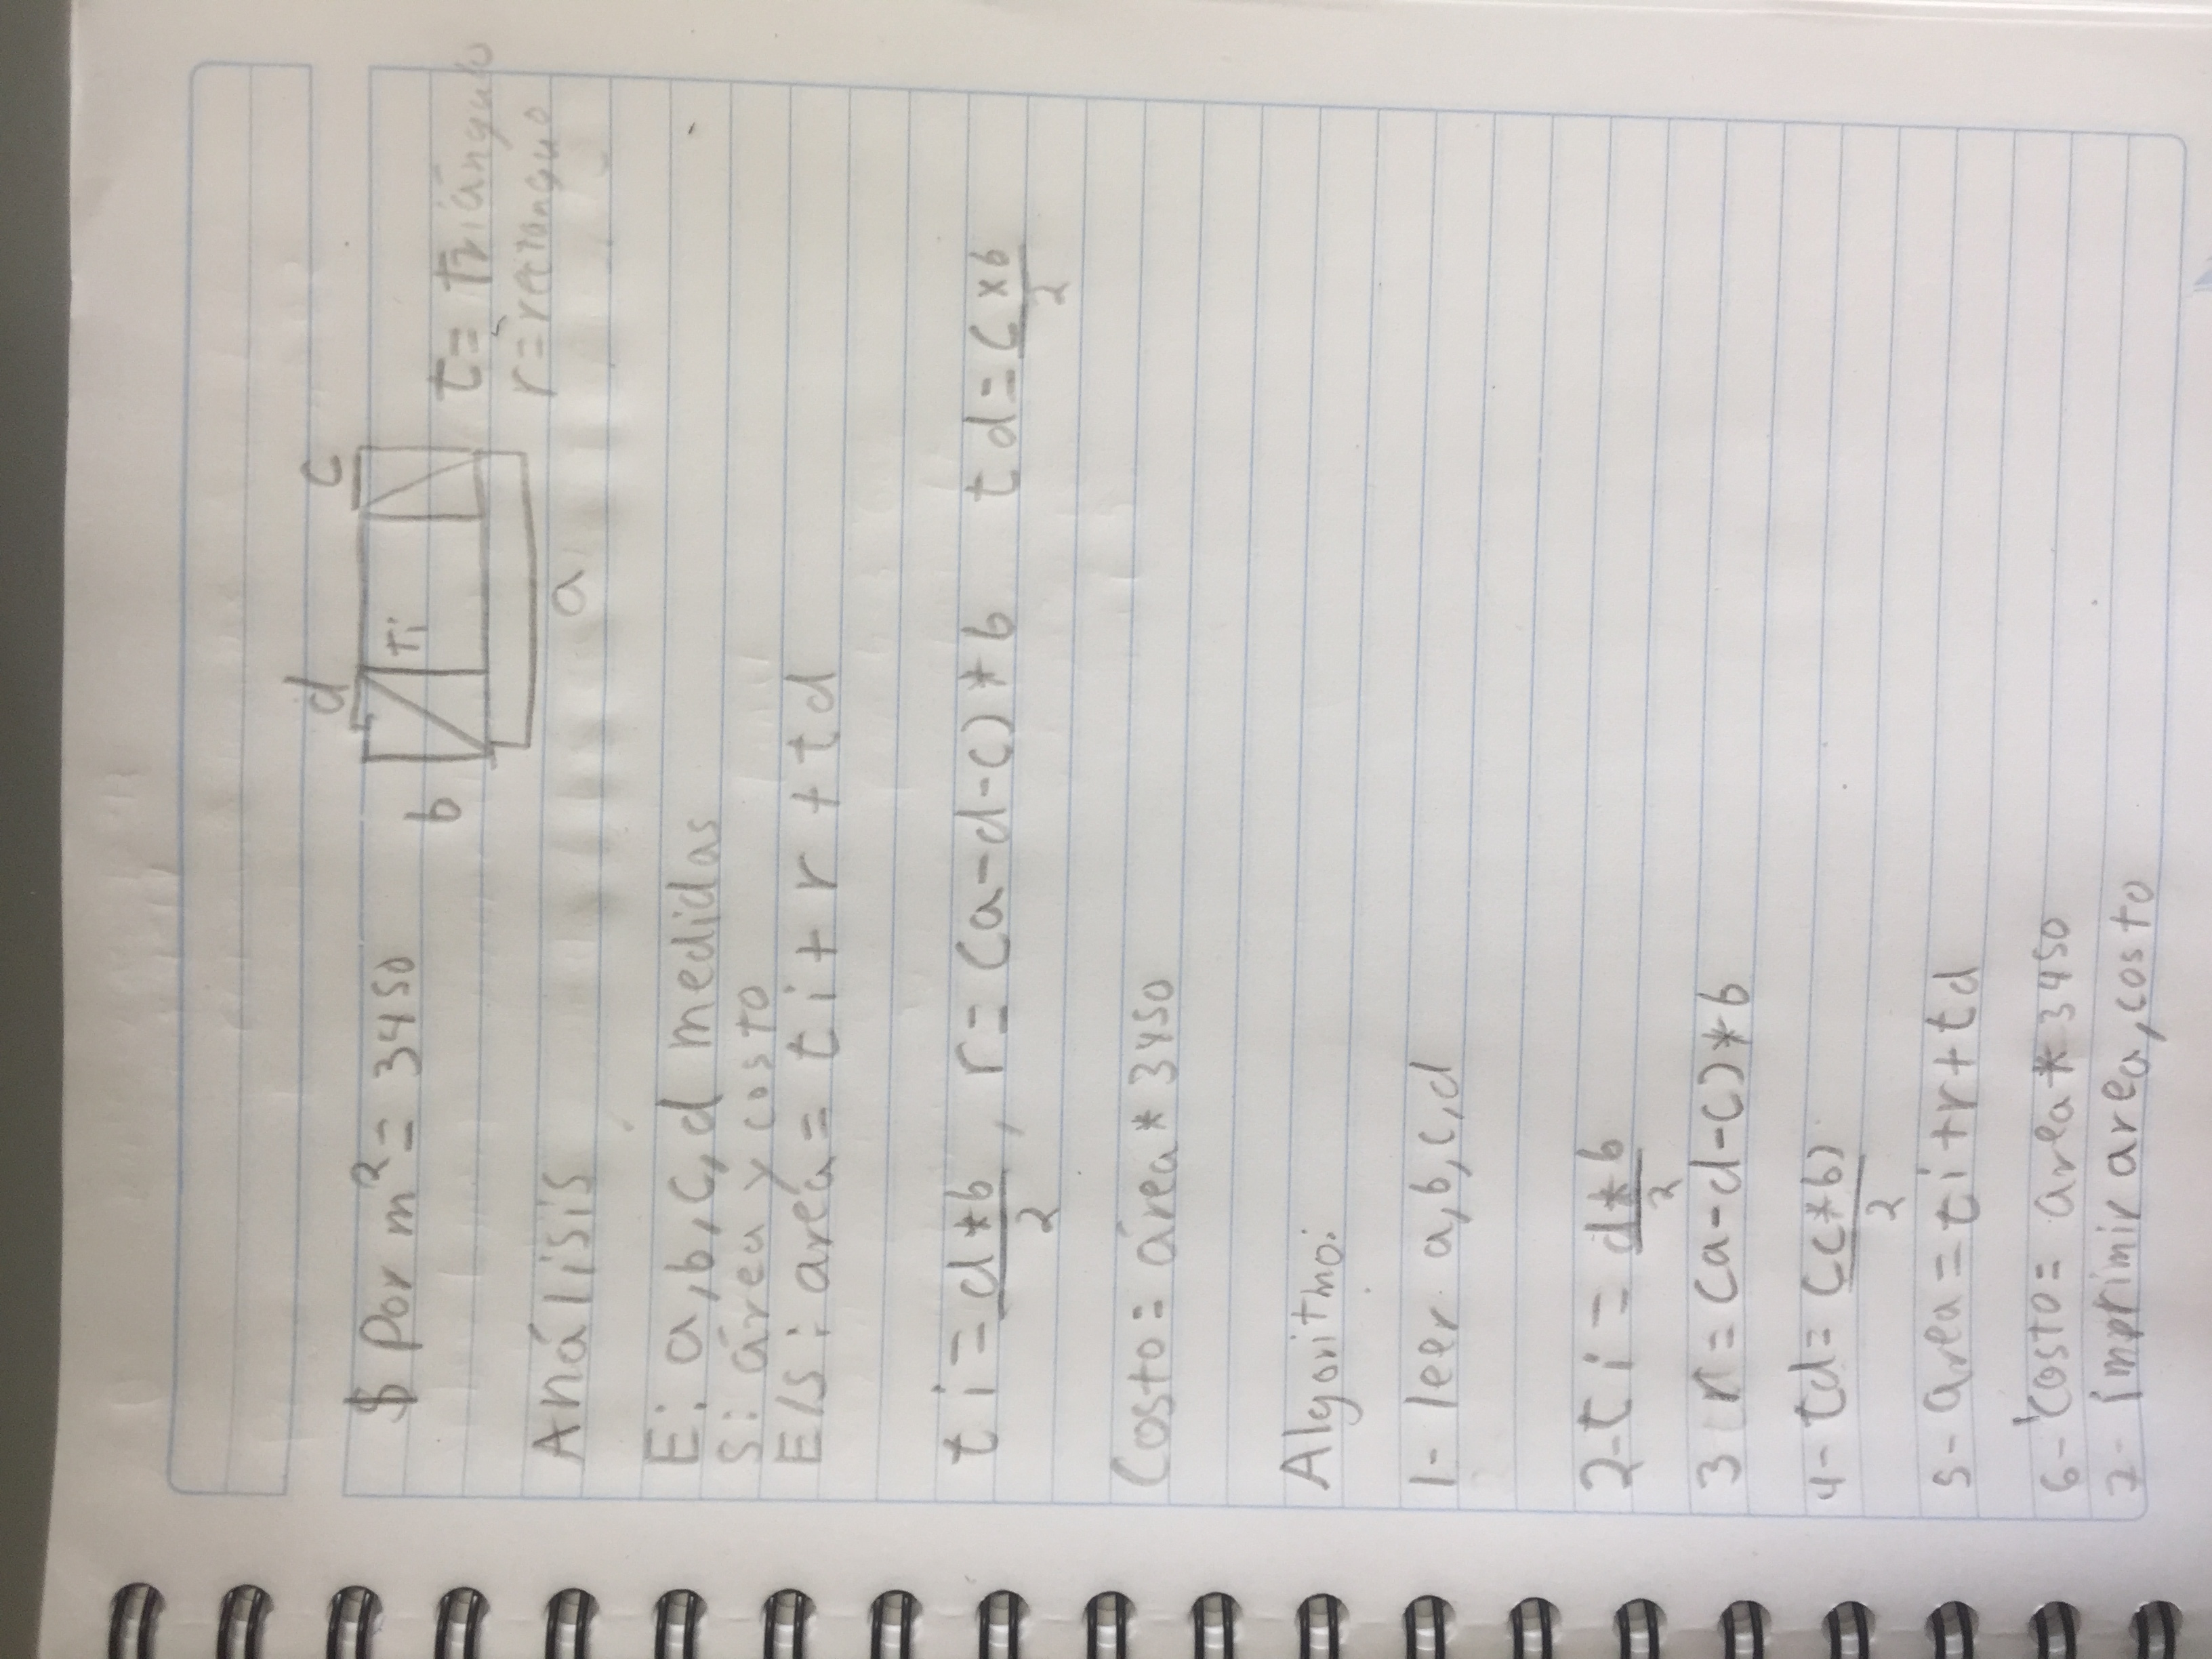 d c
$ Por m² = 3450
b ti
t= triángulo
r=rectanguo
a
Análisis
E: a,b,c,d medidas
S: área y costo
E/S: area = ti + r + td
ti = d*b/2, r= (a-d-c)*b td= cxb/2
Costo= área * 3450
Algoritmo:
1- leer a,b,c,d
2- ti = d*b/2
3 r = (a-d-c)*b
4- td= (c*b)/2
5- area = ti+r+td
6- costo= area * 3450
7- imprimir area, costo